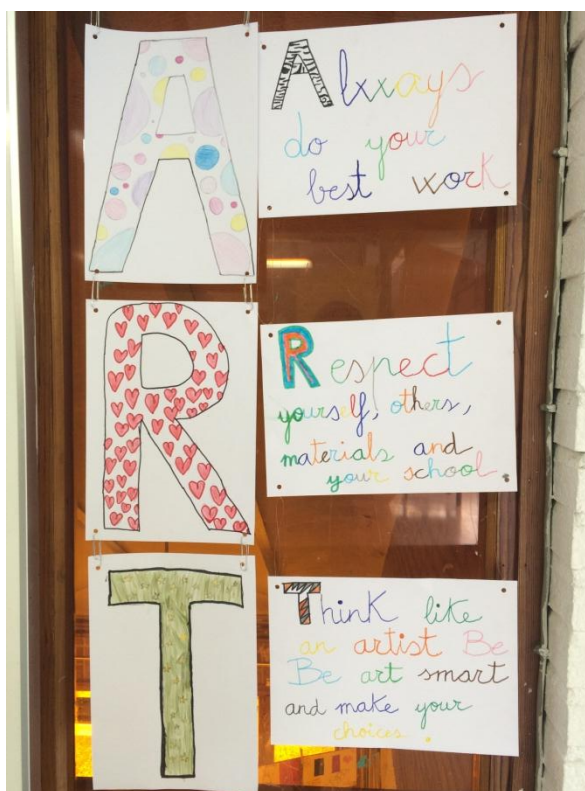 A
Always
do your
best work
R
Respect
yourself, others,
materials and
your school
T
Think like
an artist Be
Be art smart
and make your
choices.